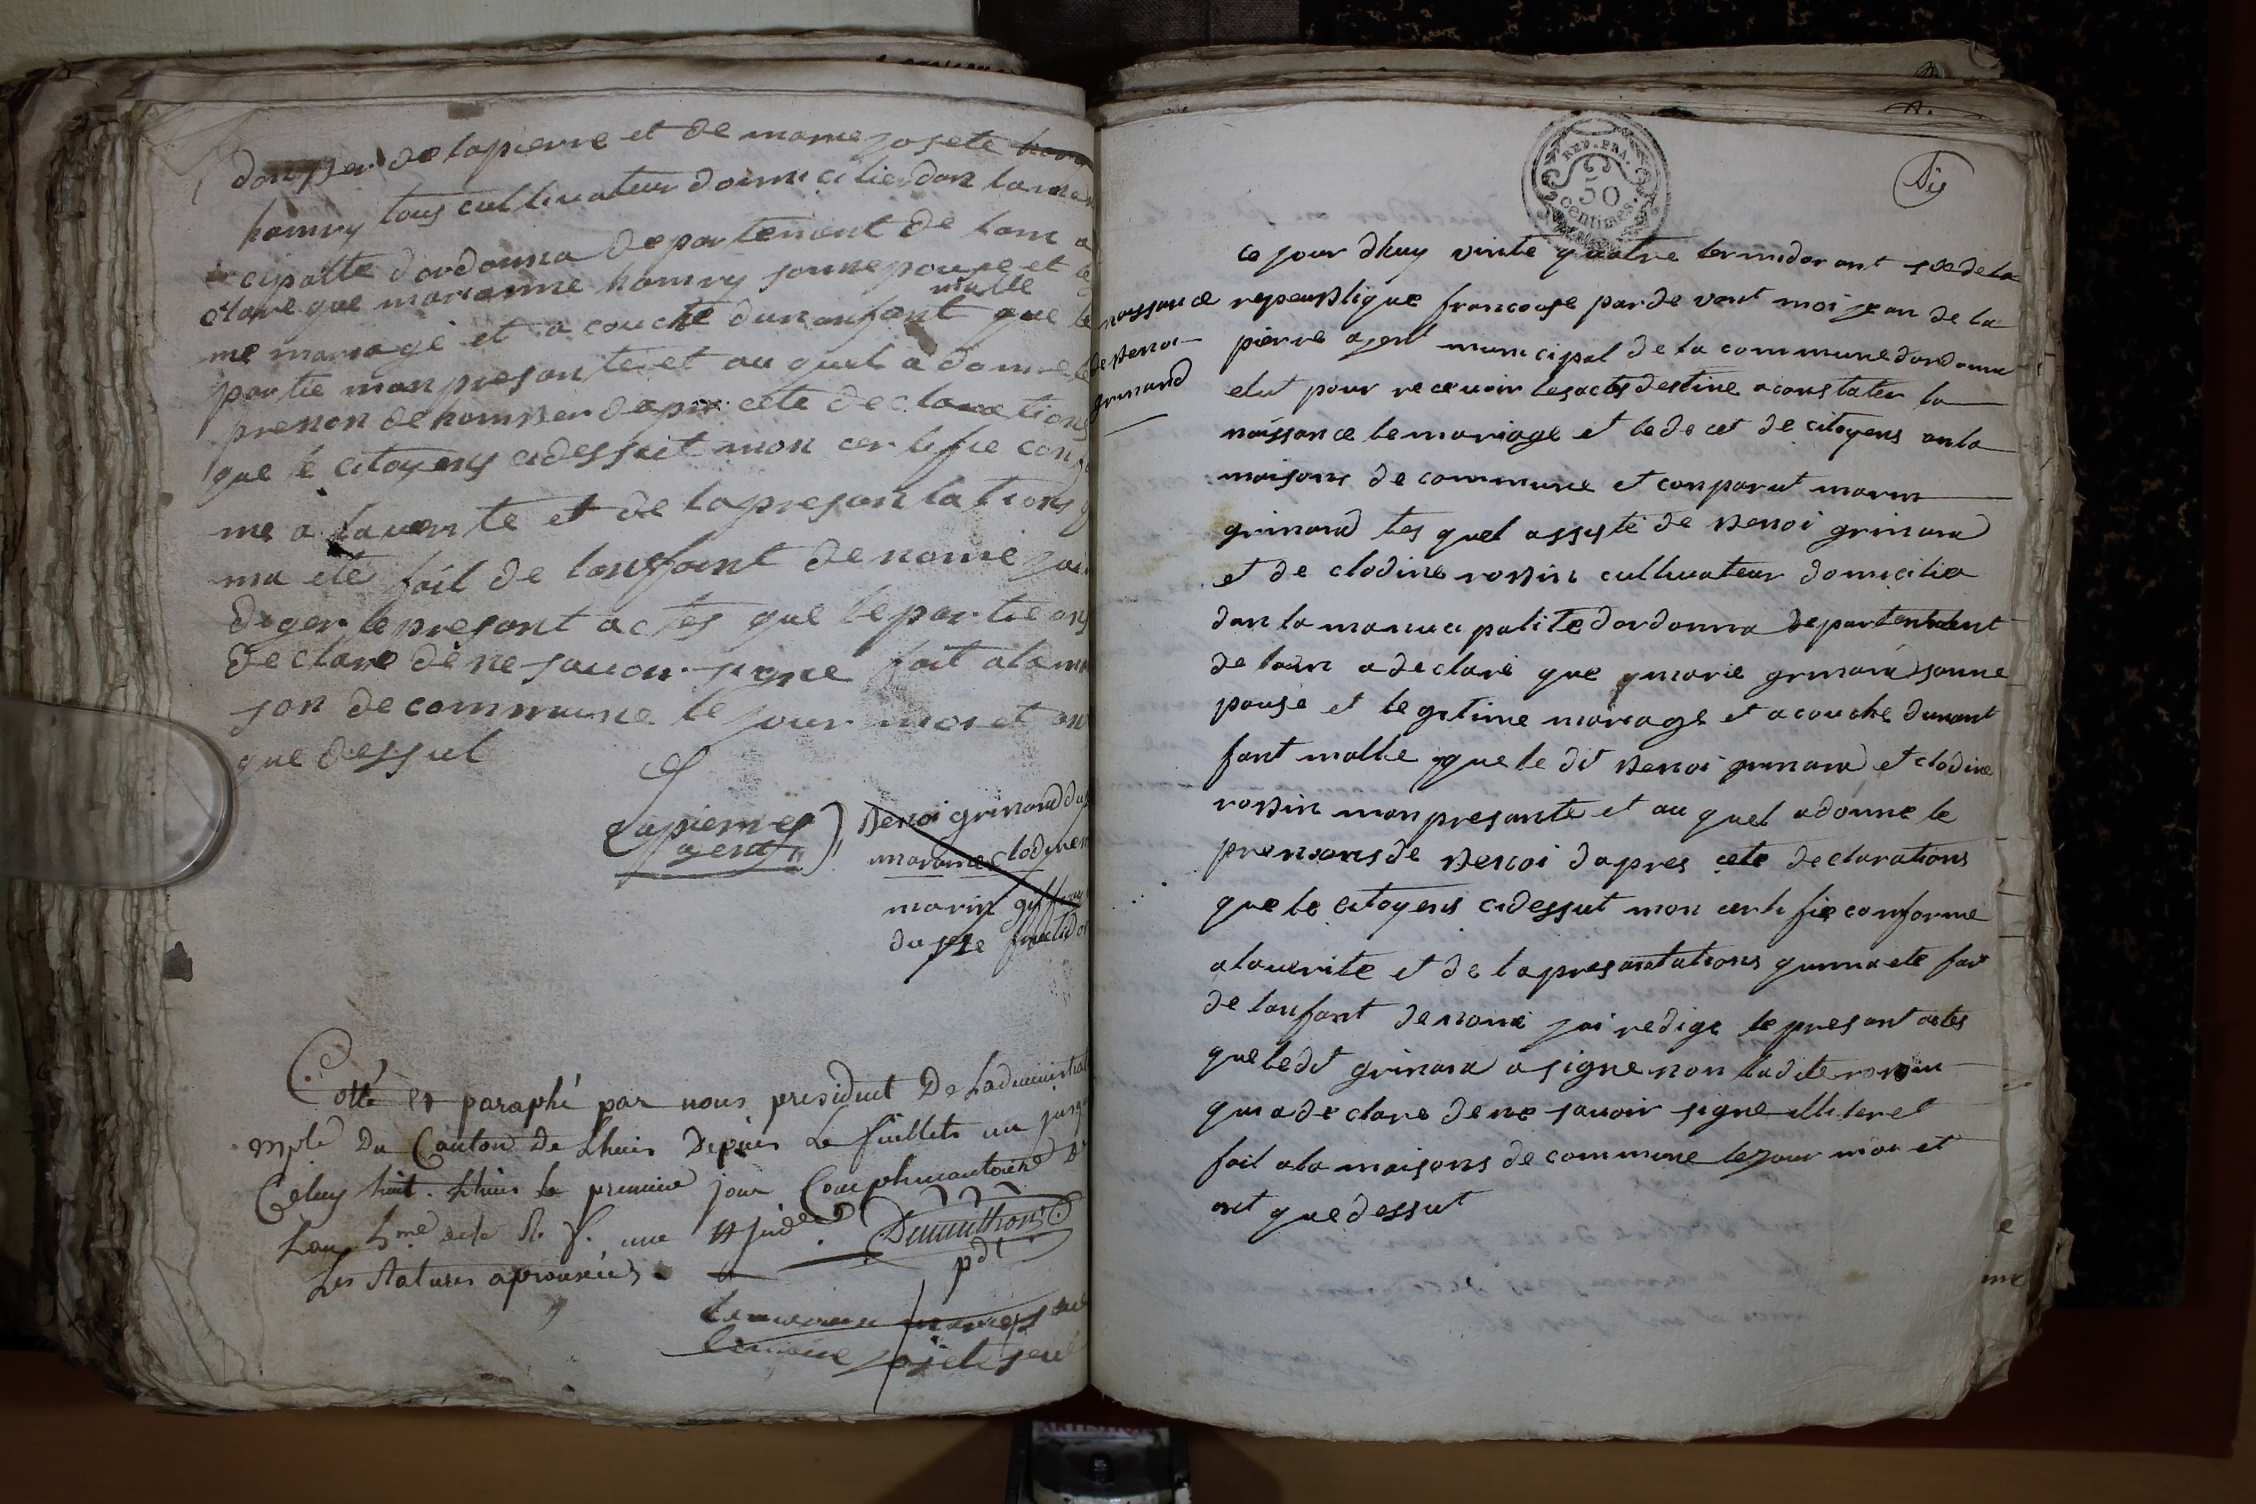 de lapierre et de marie josete
homry tous cultivateur domicilier dan la
cipalite dordonna departement de lain a
clare que marianne homry sonnepouse et le
malle
me mariage et a couche dunanfant que le
partie mon presante et au quel a donne le
prenon de homber dapre cete declarations
que le citoyens cidessut mon certifie conf
me a laverite et de lapresantations q
ma ete fait de lanfant denome jai
diger le presant actes que le partie ons
declare de ne savoir signe fait a la mai
son de commune le jour mois et an
que dessut
Lapierre
agent
Benoi grinand du
marianne clodine
marin
du fructidor
Cotté et paraphé par nous president De Ladministrat
mple Du Canton De Lhuis Depuis Le feuillets un jusqu
Celuy huit. Lhuis le premier jour Complimantaire De
Lan 5me de la R. f. une
pdt
Les Ratures aprouvées
REP. FRA.
50
centimes.
Dix
ce jour dhuy vinte quatre termidor ant six de la
naissance
repeublique francoise par de vant moi jean de la
de Benoi
pierre agent municipal de la commune dordonna
grinand
elut pour recevoir les actes destine a constater la
naissance le mariage et le decet de citoyens an la
maisons de commune et conparut marin
grinand les quel assiste de Benoi grinand
et de clodine robbin cultivateur domicilie
dan la manucipalite dordonna departement
de lain a declare que marie grinand sonne
pouse et legitime mariage et a couche dunant
fant malle que le dit Benoi grinand et clodine
robbin mon presante et au quel a donne le
prenons de Benoi dapres cete declarations
que le citoyens cidessut mon certifie conforme
a laverite et de lapresantations quima ete fait
de lanfant denome jai redige le presant actes
que ledit grinand a signe non ladite robbin
qui a declare de ne savoir signe
fait a la maisons de commune le jour moi et
ant que dessut